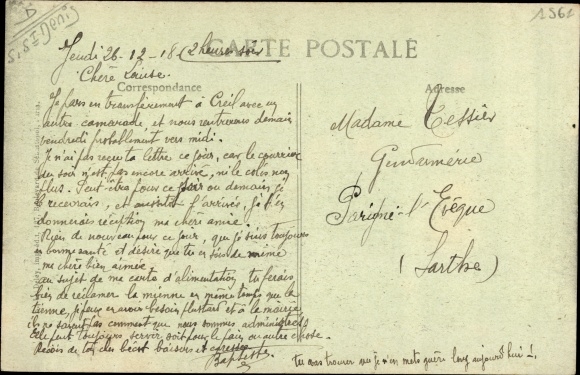 1561
D
S. St Denis
CARTE POSTALE
Jeudi 26-12-18 (2 heures soir
Chère Louise.
Correspondance
Adresse
Je pars en transfèrement à Creil avec un
autre camarade et nous rentrerons demain
vendredi probablement vers midi.
Je n'ai pas reçu ta lettre ce jour, car le courrier
du soir n'est pas encore arrivé, ni le colis non
plus. Peut-être pour ce soir ou demain je
recevrais, et aussitôt l'arrivée, je t'en
donnerais réception ma chère amie.
Rien de nouveau pour ce jour, que je suis toujours
en bonne santé et désire que tu en sois de même
ma chère bien aimée.
au sujet de ma carte d'alimentation tu ferais
bien de réclamer la mienne en même temps que la
tienne, je peux en avoir besoin plus tard et à la mairie
ils ne savent pas comment que nous sommes administrés
Elle peut toujours servir, soit pour le pain ou autre chose.
Reçois de ton cher bébert baisers et caresses
Baptiste
Madame Tessier
Gendarmerie
Parigné-l'Evêque
(Sarthe)
tu vas trouver que je n'en mets guère long aujourd'hui !